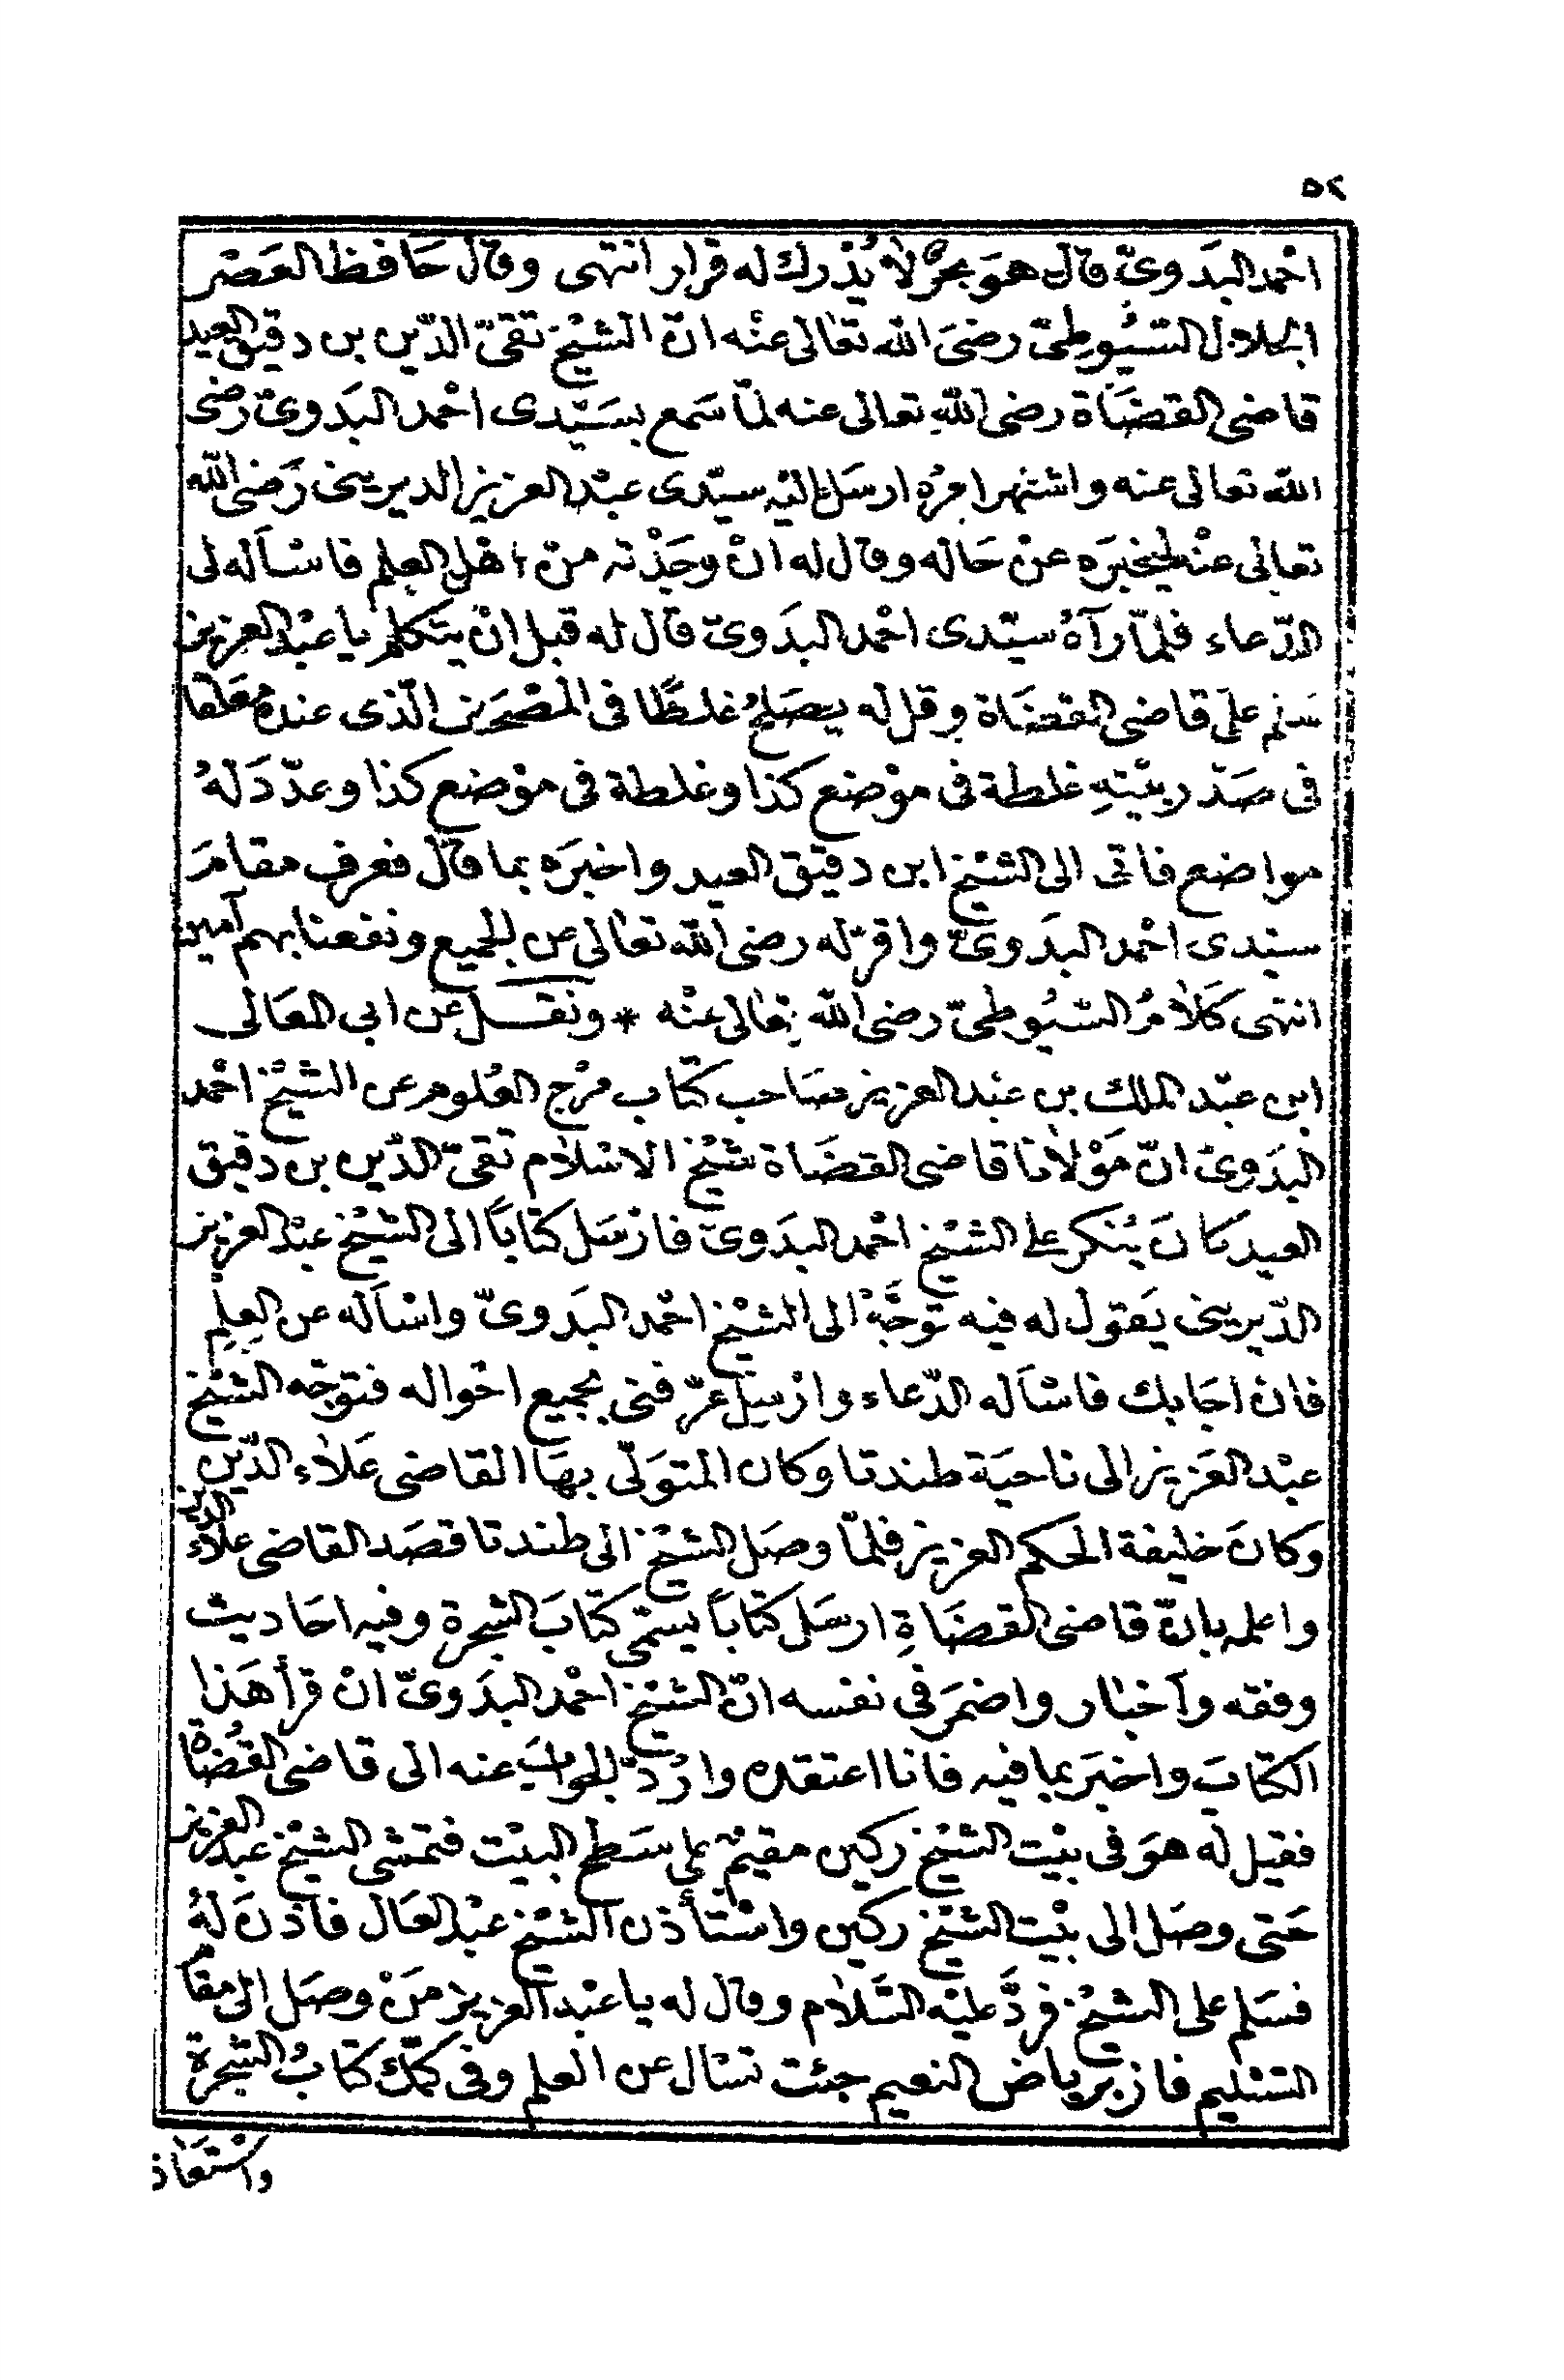 ٥٢
احْمد البَدَوىّ قال هوَ بحرٌ لاٰ يُدْرك له قرار انتهى وقال حَافظ العَصْر
الجلال السّيُوطىّ رضىَ الله تعٰالى عنْه انّ الشيْخ تقىّ الدّين بن دقيق العيد
قاضى القضَاة رضى اللهِ تعالى عنه لمّا سَمع بسَيّدى احْمد البَدوىّ رضى
الله تعالى عنه واشتهر امْرُه ارسَل اليْه سيّدى عبْد العزيز الديرينى رَضى الله
تعالى عنْه ليخبرَه عنْ حَاله وقال له انْ وجَدْته منْ اهْل العِلم فاسْأله لى
الدّعاء فلمّا رآهُ سيّدى احْمد البدَوىّ قال له قبل انْ يتَكلم يا عبْد العزيز
سَلم علىَ قاضى القضَاة وقل له يصَلحُ غلطًا فى المصْحَف الّذى عندهُ معَلقا
فى صَدْر بيْتهِ غلطة فى موْضع كذا وغلطة فى موْضع كذا وعدّدَ لهُ
مواضع فاتى الى الشيْخ ابن دقيق العيد واخبرَه بما قال فعرف مقامَ
سيّدى احْمد البدَوىّ واقرّ له رضى الله تعٰالى عن الجميع ونفعنا بهم آمين
انتهى كَلاٰمُ السّيُوطىّ رضى الله تعٰالى عنْه * ونقــل عن ابى المعَالى
ابن عبْد الملك بن عبْد العزيز صَاحب كتاب مرْج العُلوم عن الشيْخ احْمد
البَدَوىّ انّ مَوْلاٰنا قاضى القضَاة شيْخ الاسْلاٰم تقىّ الدّين بن دقيق
العيد كانَ يُنكر على الشيْخ احْمد البدَوىّ فارْسَل كتابًا الى الشيْخ عبْد العزيز
الدّيرينى يَقول له فيه توَجَّهْ الى الشيْخ احْمد البَدوىّ واسْأله عن العِلم
فان اجَابك فاسْأله الدّعاء وارْسِل عرّفنى بجميع احْواله فتوجّه الشيْخ
عبْد العَزيز الى ناحيَة طندتا وكان المتوَلّى بهَا القاضى عَلاٰء الدّين
وكانَ خليفة الحكم العزيز فلمّا وصَل الشيْخ الى طندتا قصَد القاضى علاٰء الدين
واعلمه بانّ قاضى القضَاةِ ارسَل كتابًا يسمّى كتابَ الشجرة وفيه احَاديث
وفقه وأخبار واضمَر فى نفسه انّ الشيْخ احْمد البدَوىّ انْ قرأ هَذا
الكتابَ واخبَر بما فيه فانا اعتقده وارُدّ الجوابَ عنه الى قاضى القُضاة
فقيل له هوَ فى بيْت الشيْخ ركين مقيمٌ على سَطح البيْت فتمشى الشيْخ عبد العزيز
حَتى وصَل الى بيْت الشيْخ ركين واسْتأذن الشيْخ عبْد العَال فاذنَ لهُ
فسَلم على الشيْخ فردَّ عليْه السَّلاٰم وقال له يا عبْد العزيز منْ وصَل الى مقام
التسْليم فاز برياض النعيم جئت تسْال عن العلم وفى كمّك كتابُ الشجرة
واسْتعَاذ